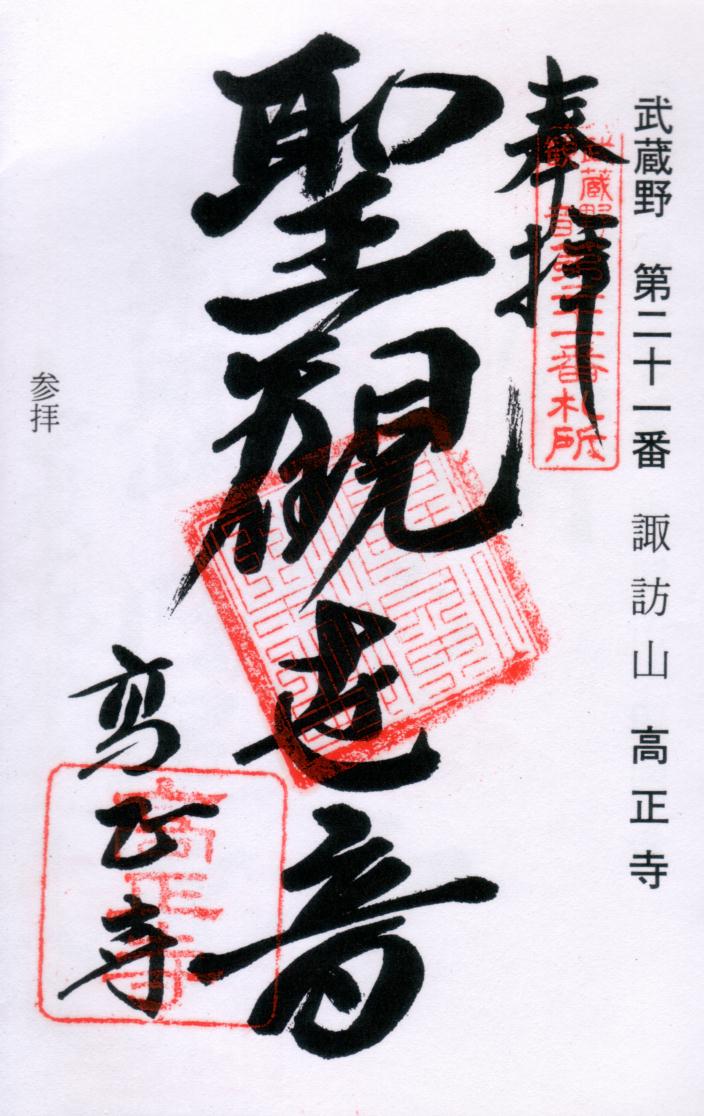 武蔵野 第二十一番 諏訪山 高正寺
奉拝
武蔵野
観音第二十一番札所
聖観世音
高正寺
高正寺
参拝